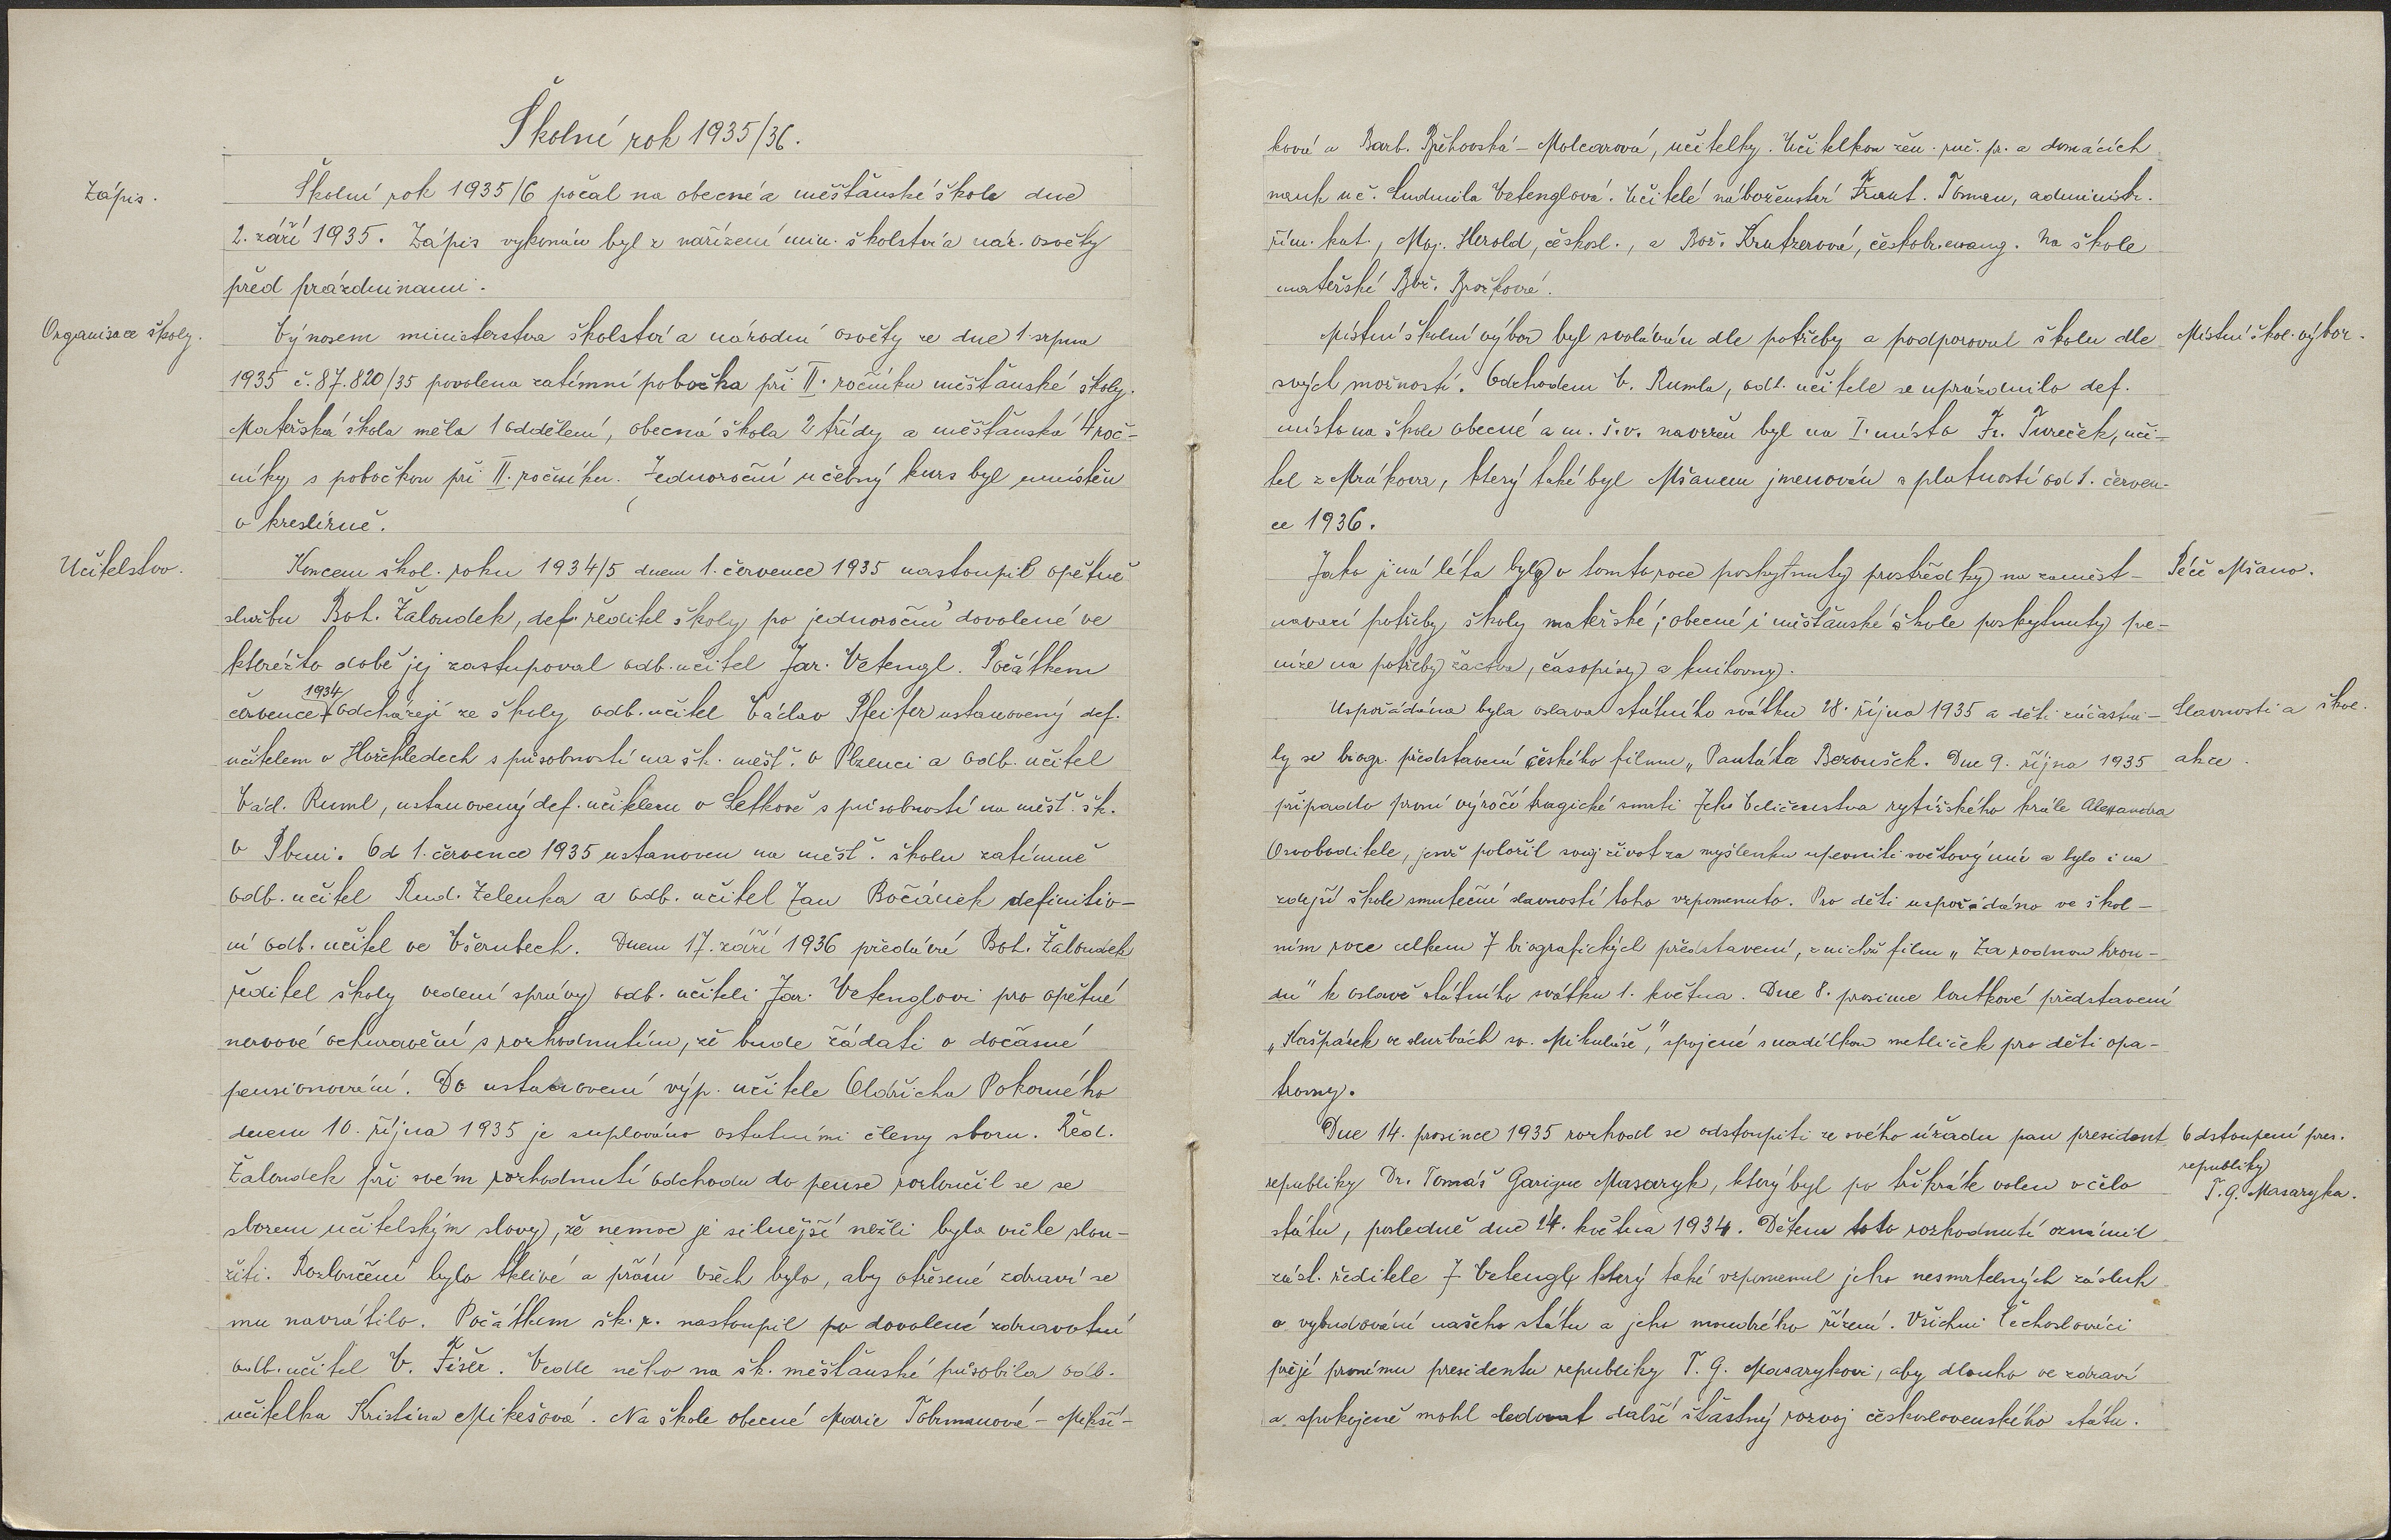 Školní rok 1935/36.
Zápis.
Školní rok 1935/6 počal na obecné a měšťanské škole dne
2. září 1935. Zápis vykonán byl z nařízení min. školství a nár. osvěty
před prázdninami.
Organisace školy.
Výnosem ministerstva školství a národní osvěty ze dne 1. srpna
1935 č. 87.820/35 povolena zatímní pobočka při II. ročníku měšťanské školy.
Mateřská škola měla 1 oddělení, obecná škola 2 třídy a měšťanská 4 roč-
níky s pobočkou při II. ročníku. Jednoroční učebný kurs byl umístěn
v kreslírně.
Učitelstvo.
Koncem škol. roku 1934/5 dnem 1. července 1935 nastoupil opětně
službu Boh. Žaloudek, def. ředitel školy po jednoroční dovolené ve
kteréžto době jej zastupoval odb. učitel Jar. Vetengl. Počátkem
července 1934 odcházejí ze školy odb. učitel Václav Pfeifer ustanovený def.
učitelem v Horchledech s působností na šk. měšť. v Plzenci a odb. učitel
Vád. Ruml, ustanovený def. učitelem v Letkově s působností na měšť. šk.
v Plzni. Od 1. července 1935 ustanoven na měšť. školu zatímně
odb. učitel Rud. Zelenka a odb. učitel Jan Bočánek definitiv-
ní odb. učitel ve Všerubech. Dnem 17. září 1936 předává Boh. Žaloudek
ředitel školy vedení správy odb. učiteli Jar. Vetenglovi pro opětné
nervové ochuravění s rozhodnutím, že bude žádati o dočasné
pensionování. Do ustanovení výp. učitele Oldřicha Pokorného
dnem 10. října 1935 je suplováno ostatními členy sboru. Řed.
Žaloudek při svém rozhodnutí odchodu do pense rozloučil se se
sborem učitelským slovy, že nemoc je silnější nežli byla vůle slou-
žiti. Rozloučení bylo tklivé a přání všech bylo, aby otřesené zdraví se
mu navrátilo. Počátkem šk. r. nastoupil po dovolené zdravotní
odb. učitel V. Fišer. Vedle něho na šk. měšťanské působila odb.
učitelka Kristina Mikešová. Na škole obecné Marie Tohrmanová-Mikší-
ková a Barb. Břehovská-Molcarová, učitelky. Učitelkou žen. ruč. pr. a domácích
nauk uč. Ludmila Vetenglová. Učitelé náboženství Frant. Toman, administr.
řím. kat., Maj. Herold, českosl., a Bož. Krutzerová, českobr. evang. Na škole
mateřské Bož. Brožková.
Místní školní výbor byl svoláván dle potřeby a podporoval školu dle
Místní škol. výbor.
svých možností. Odchodem V. Rumla, odb. učitele se uprázdnilo def.
místo na škole obecné a m. š. v. navržen byl na I. místo Fr. Tureček, uči-
tel z Mrákova, který také byl Mšanem jmenován s platností od 1. červen-
ce 1936.
Jako jiná léta byly v tomto roce poskytnuty prostředky na zaměst-
Péče Mšano.
návací potřeby školy mateřské; obecné i měšťanské škole poskytnuty pe-
níze na potřeby žactva, časopisy a knihovny.
Uspořádána byla oslava státního svátku 28. října 1935 a děti zúčastni-
Slavnosti a škol.
ly se biogr. představení českého filmu „Pantáta Bezoušek. Dne 9. října 1935
akce.
připadlo první výročí tragické smrti Jeho Veličenstva rytířského krále Alexandra
Osvoboditele, jenž položil svůj život za myšlenku upevniti světový mír a bylo i na
zdejší škole smuteční slavností toho vzpomenuto. Pro děti uspořádáno ve škol-
ním roce celkem 7 biografických představení, z nichž film „Za rodnou hrou-
du" k oslavě státního svátku 1. května. Dne 8. prosince loutkové představení
„Kašpárek ve službách sv. Mikuláše", spojené s nadílkou metliček pro děti opa-
trovny.
Dne 14. prosince 1935 rozhodl se odstoupiti ze svého úřadu pan president
Odstoupení pres.
republiky
T. G. Masaryka.
republiky Dr. Tomáš Garigue Masaryk, který byl po třikráte volen v čelo
státu, posledně dne 24. května 1934. Dětem toto rozhodnutí oznámil
zást. ředitele J. Vetengl, který také vzpomenul jeho nesmrtelných zásluh
o vybudování našeho státu a jeho moudrého řízení. Všichni Čechoslováci
přejí prvnímu presidentu republiky T. G. Masarykovi, aby dlouho ve zdraví
a spokojeně mohl sledovat další šťastný rozvoj československého státu.